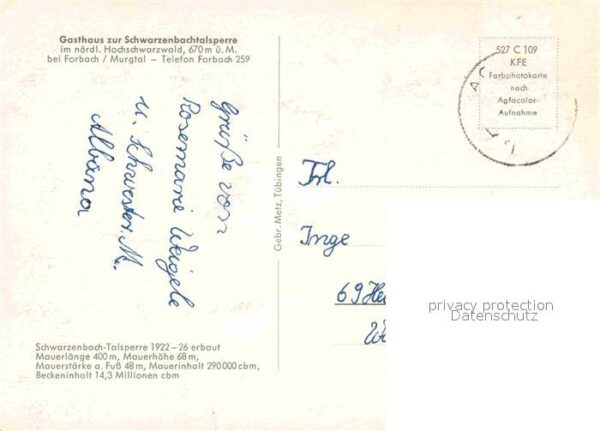 Gasthaus zur Schwarzenbachtalsperre
im nördl. Hochschwarzwald, 670 m ü. M.
bei Forbach / Murgtal – Telefon Forbach 259
Grüße von
Rosemarie Weigele
u. Schwester M.
Albana
Schwarzenbach-Talsperre 1922–26 erbaut
Mauerlänge 400 m, Mauerhöhe 68 m,
Mauerstärke a. Fuß 48 m, Mauerinhalt 290 000 cbm,
Beckeninhalt 14,3 Millionen cbm
Gebr. Metz, Tübingen
527 C 109
KFE
Farbphotokarte
nach
Agfacolor-
Aufnahme
Frl.
Inge
69 He
privacy protection
Datenschutz